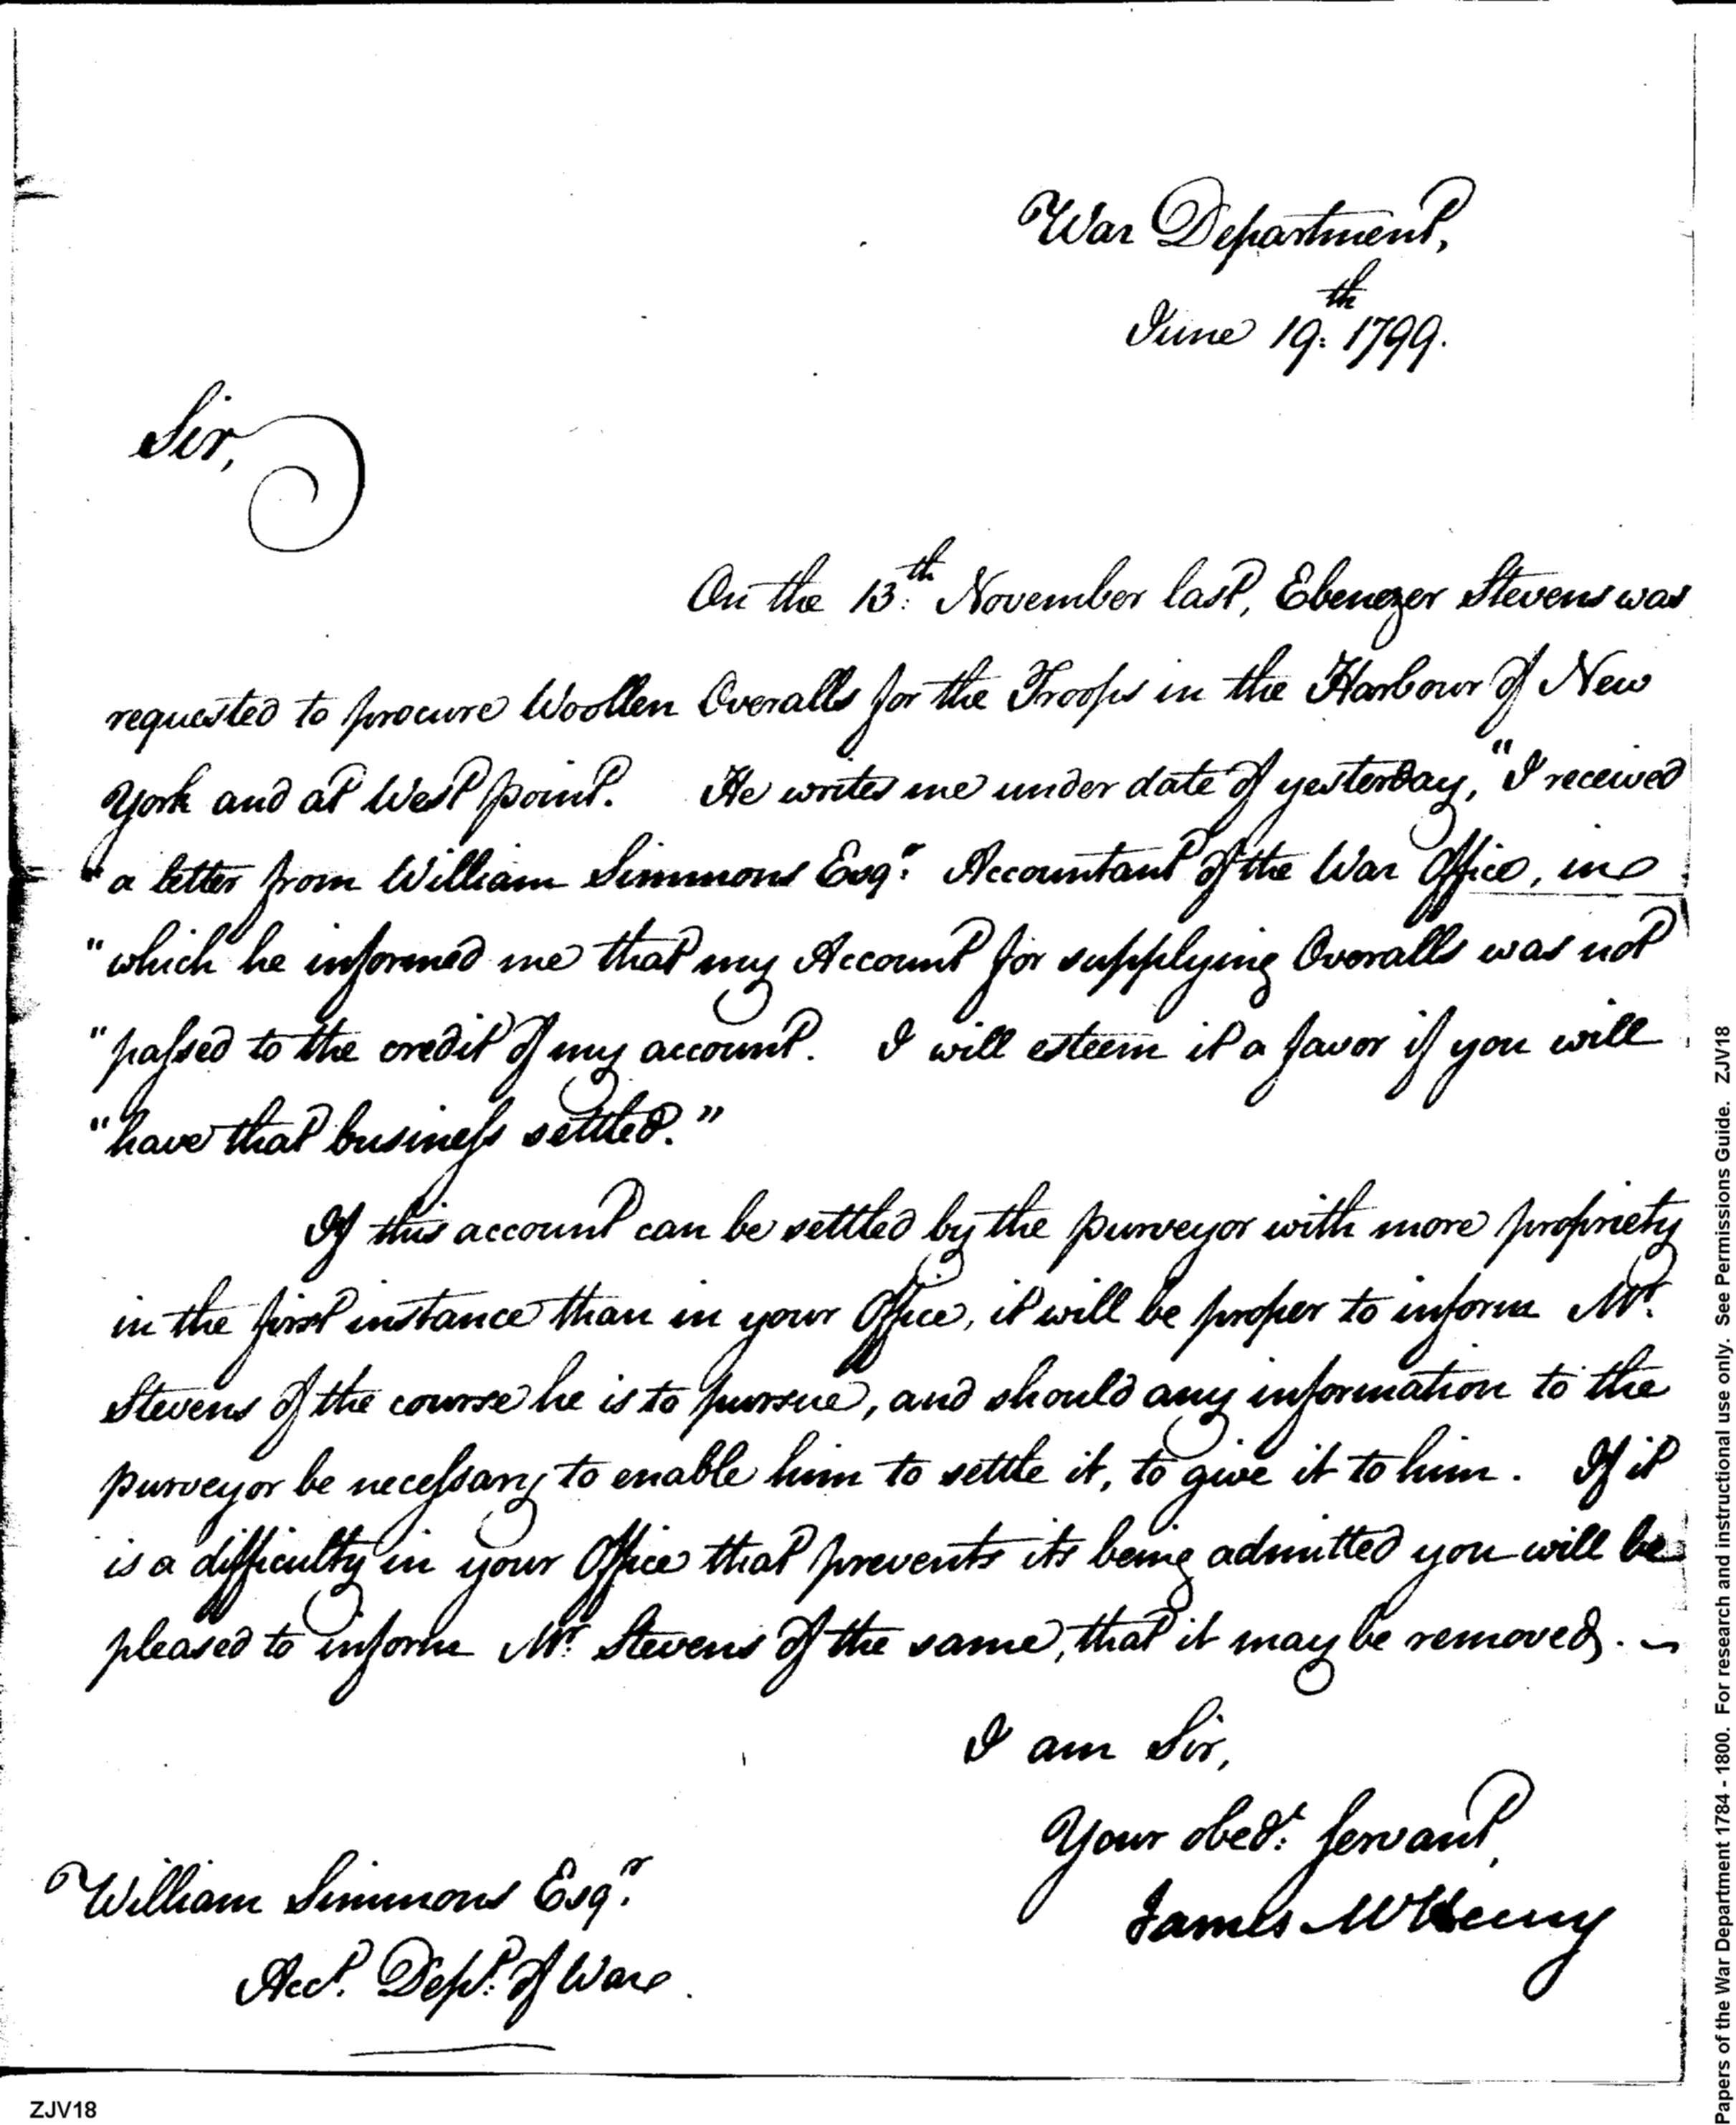 War Department,
June 19th: 1799.
Sir,
On the 13th: November last, Ebenezer Stevens was
requested to procure Woollen Overalls for the Troops in the Harbour of New
York and at West point. He writes me under date of yesterday, "I received
"a letter from William Simmons Esqr. Accountant of the War Office, in
"which he informed me that my Account for supplying Overalls was not
"passed to the credit of my account. I will esteem it a favor if you will
"have that business settled."
If this account can be settled by the purveyor with more propriety
in the first instance than in your Office, it will be proper to inform Mr.
Stevens of the course he is to pursue, and should any information to the
purveyor be necessary to enable him to settle it, to give it to him. If it
is a difficulty in your Office that prevents its being admitted you will be
pleased to inform Mr. Stevens of the same, that it may be removed.
I am Sir,
Your obedt: servant,
James McHenry
William Simmons Esqr.
Acct. Dept. of War.
ZJV18
Papers of the War Department 1784 - 1800. For research and instructional use only. See Permissions Guide. ZJV18